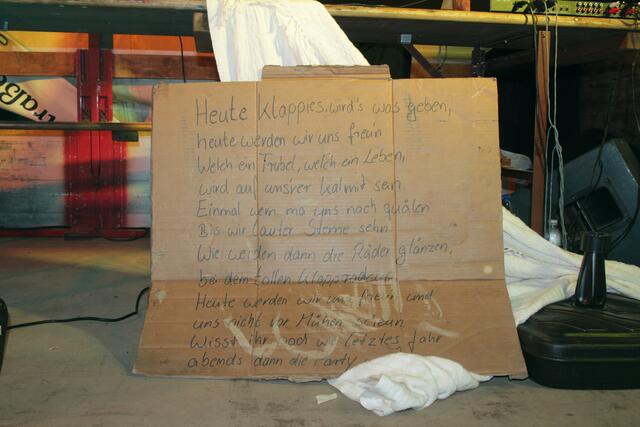 Heute Klappies, wird's was geben,
heute werden wir uns freun
Welch ein Trubel, welch ein Leben,
wird auf unsrer Kalmit sein.
Einmal wern ma uns noch quälen
Bis wir lauter Sterne sehn
Wie werden dann die Räder glänzen,
bei dem tollen Klapprad
Heute werden wir uns freun und
uns nicht vor Mühen scheun
Wisst ihr noch wie letztes Jahr
abends dann die Party
raße